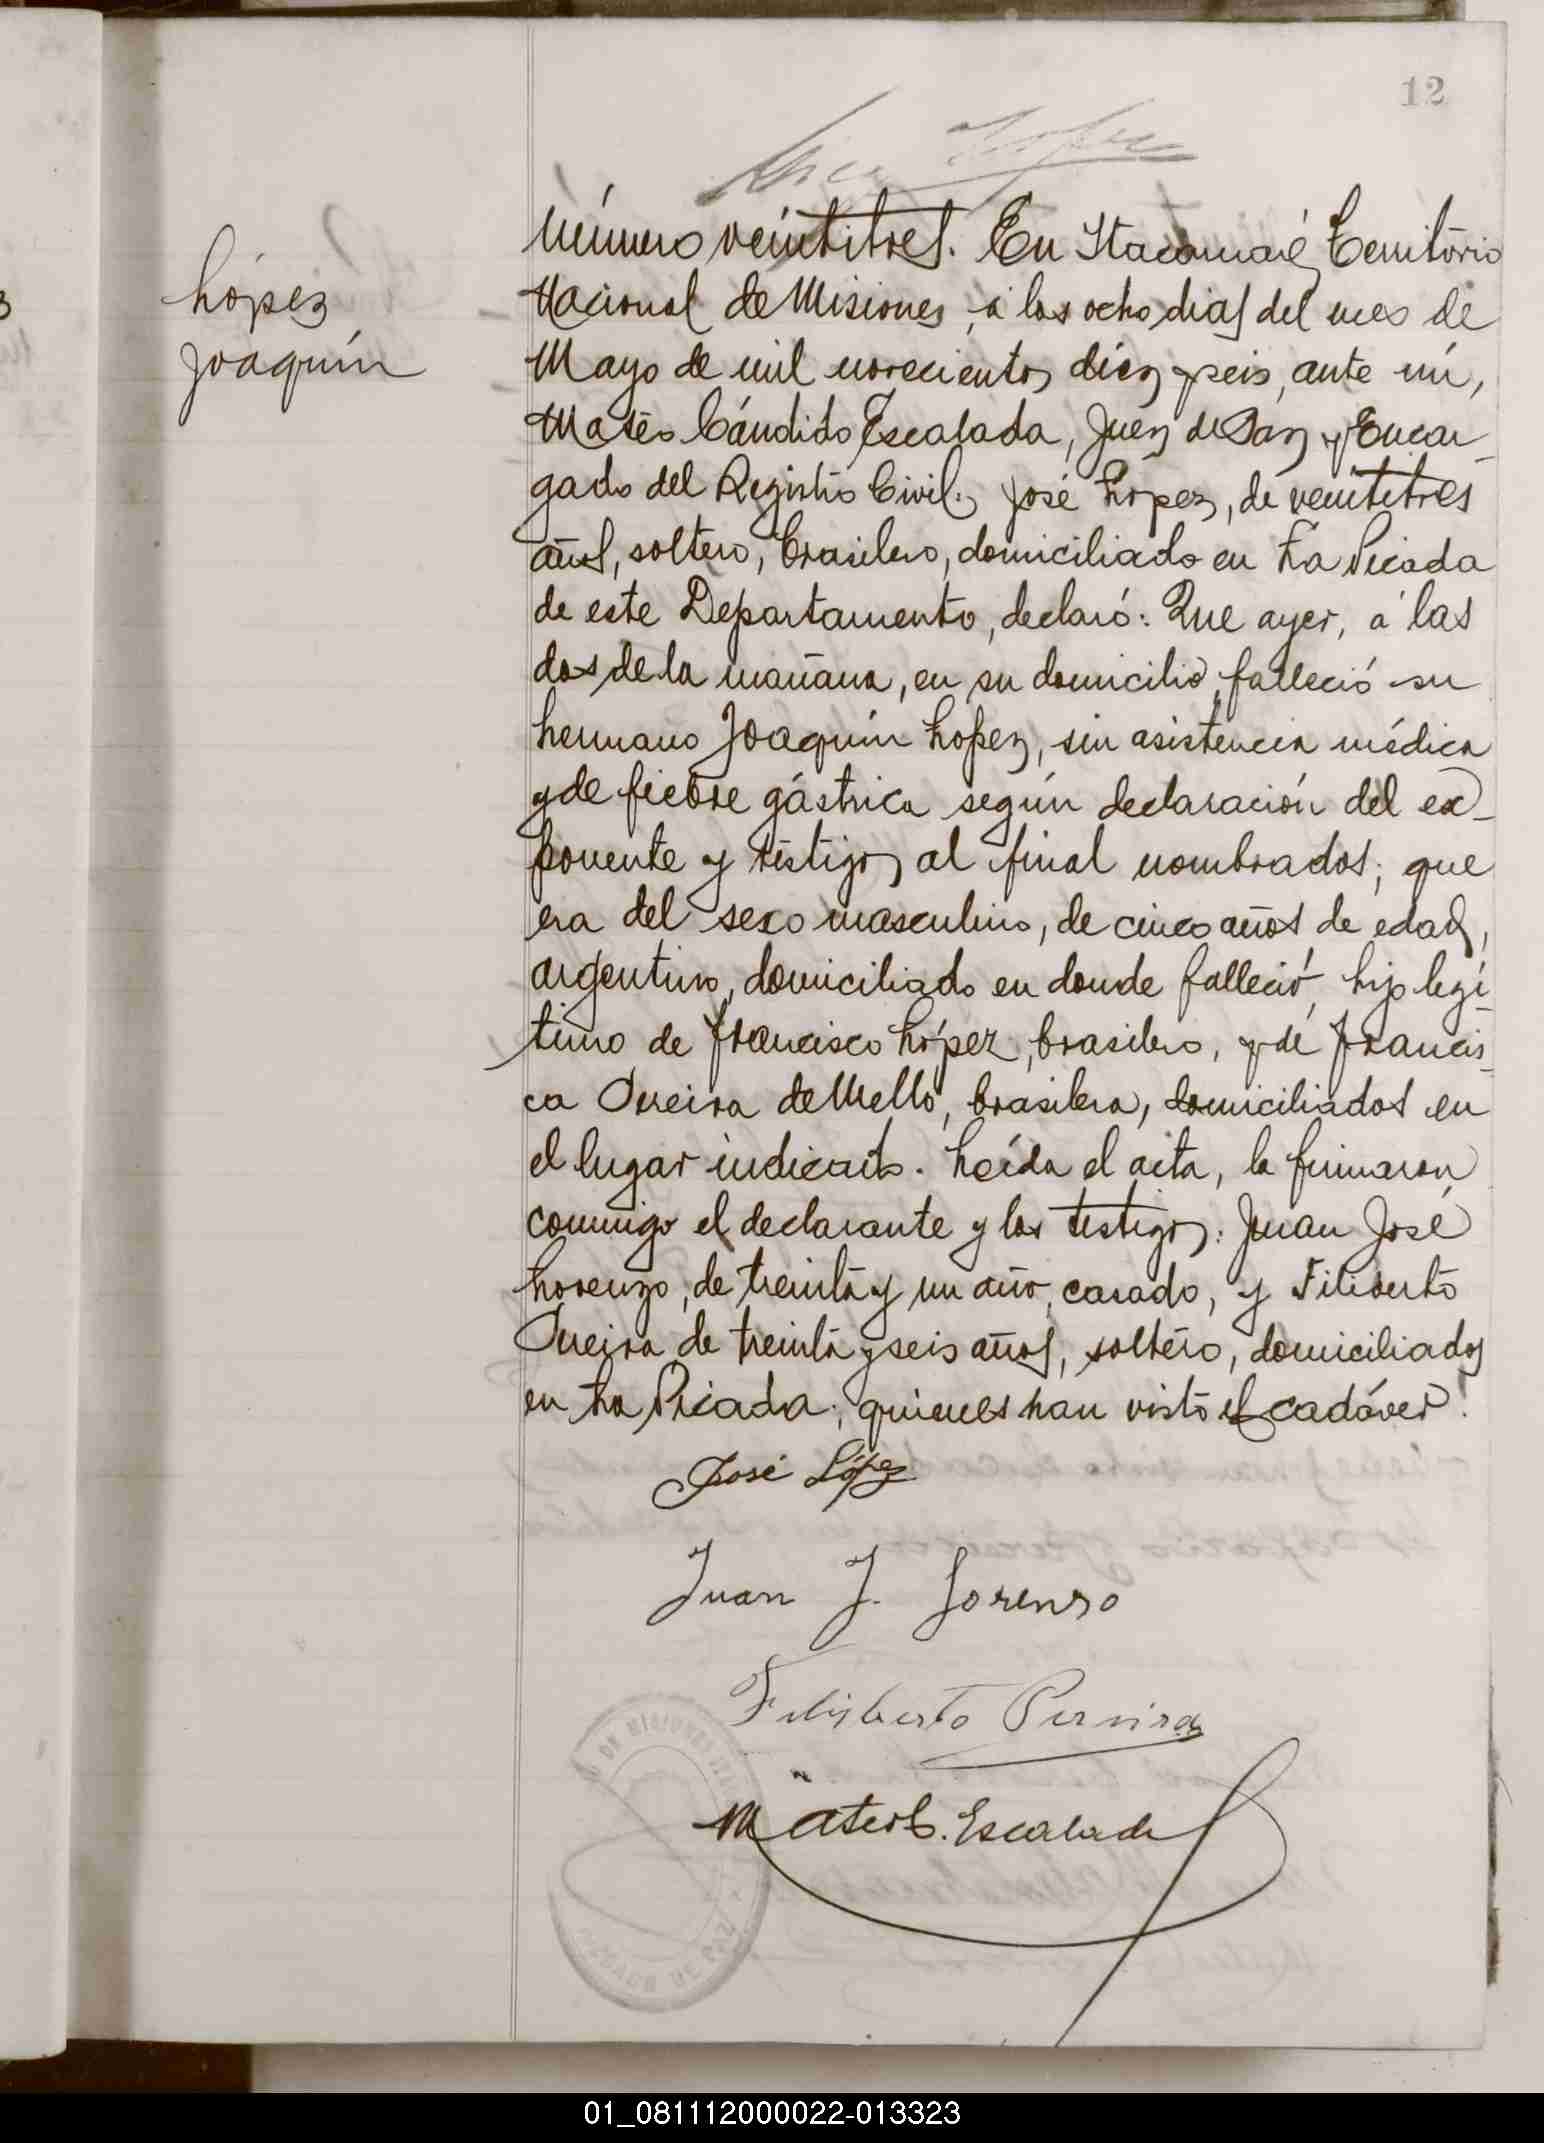 12
López
Joaquín
Número veintitres. En Itacaruaré, Territorio
Nacional de Misiones, á los ocho dias del mes de
Mayo de mil novecientos diez y seis, ante mí,
Matéo Cándido Escalada, Juez de Paz y Encar-
gado del Registro Civil, José López, de veintitres
años, soltero, brasilero, domiciliado en La Picada
de este Departamento, declaró: Que ayer, á las
dos de la mañana, en su domicilio, falleció su
hermano Joaquín Lopez, sin asistencia médica
y de fiebre gástrica según declaración del ex-
ponente y testigos al final nombrados; que
era del sexo masculino, de cinco años de edad,
argentino, domiciliado en donde falleció, hijo legí-
timo de Francisco López, brasilero, y de Francis-
ca Pereira de Mello, brasilera, domiciliados en
el lugar indicado. Leída el acta, la firmaron
conmigo el declarante y los testigos: Juan José
Lorenzo, de treinta y un año, casado, y Filiberto
Pereira de treinta y seis años, soltero, domiciliados
en La Picada; quienes han visto el cadáver.
José López
Juan J. Lorenzo
Filisberto Pereira
DE MISIONES
Mateo C. Escalada
JUZGADO DE PAZ
01_081112000022-013323